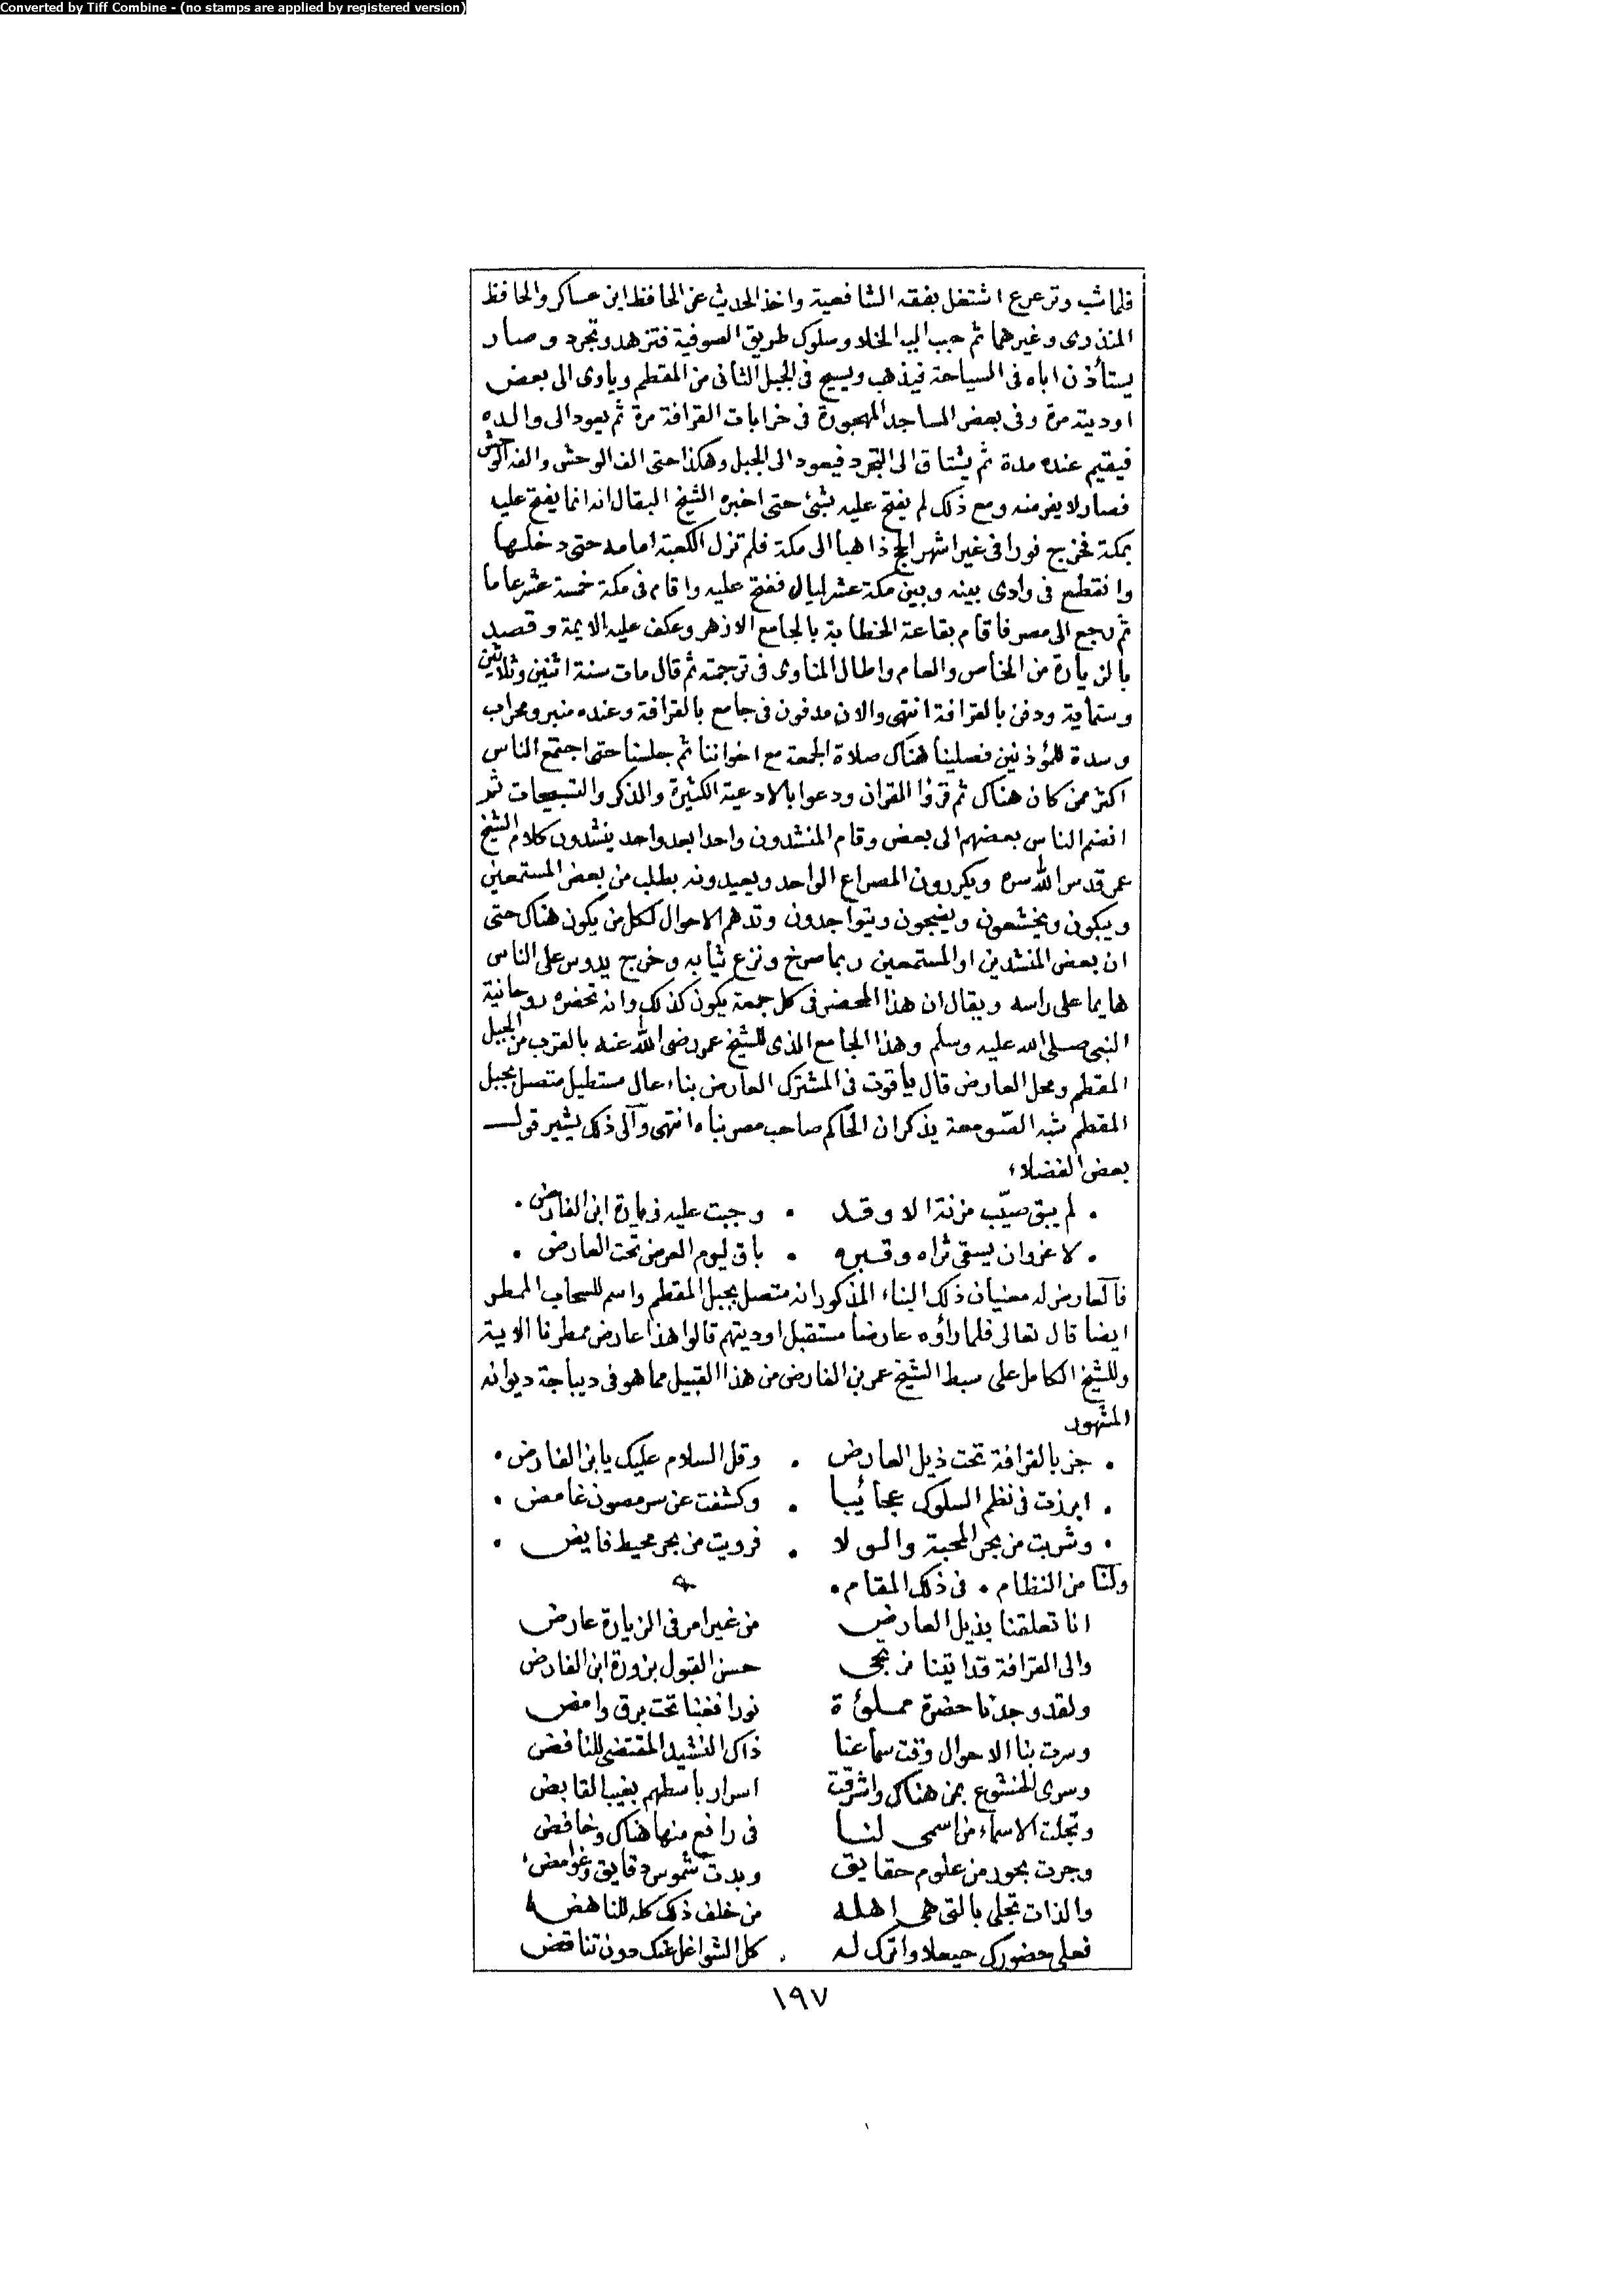 Converted by Tiff Combine - (no stamps are applied by registered version)
فلما شب وترعرع اشتغل بفقه الشافعية واخذ الحديث عن الحافظ ابن عساكر والحافظ
المنذرى وغيرهما ثم حبب اليه الخلاء وسلوك طريق الصوفية فتزهد وتجرد وصار
يستأذن اباه فى السياحة فيذهب ويسيح فى الجبل الثانى من المقطم وياوى الى بعض
اوديته مرة وفى بعض المساجد المهجورة فى خرابات القرافة مرة ثم يعود الى والده
فيقيم عنده مدة ثم يشتاق الى التجرد فيعود الى الجبل وهكذا حتى الف الوحش والفه الوحش
فصار لا يفر منه ومع ذلك لم يفتح عليه بشئ حتى اخبره الشيخ البقال انه انما يفتح عليه
بمكة فخرج فورا فى غير اشهر الحج ذاهبا الى مكة فلم تزل الكعبة امامه حتى دخلها
وانقطع فى وادى بينه وبين مكة عشر ليال ففتح عليه واقام فى مكة خمسة عشر عاما
ثم رجع الى مصر فاقام بقاعة الخطابة بالجامع الازهر وعكف عليه الايمة وقصد
بالزيارة من الخاص والعام واطال المناوى فى ترجمته ثم قال مات سنة اثنين وثلاثين
وستماية ودفن بالقرافة انتهى والان مدفون فى جامع بالقرافة وعنده منبر ومحراب
وسدة للمؤذنين فصلينا هناك صلاة الجمعة مع اخواننا ثم جلسنا حتى اجتمع الناس
اكثر ممن كان هناك ثم قرؤا القران ودعوا بالادعية الكثيرة والذكر والتسبيحات ثم
انضم الناس بعضهم الى بعض وقام المنشدون واحدا بعد واحد ينشدون كلام الشيخ
عمر قدس الله سره ويكررون المصراع الواحد ويعيدونه بطلب من بعض المستمعين
ويبكون ويخشعون ويضجون ويتواجدون وتدهم الاحوال لكل من يكون هناك حتى
ان بعض المنشدين او المستمعين ربما صرخ ونزع ثيابه وخرج يدوس على الناس
هايما على راسه ويقال ان هذا المحضر فى كل جمعة يكون كذلك وانه تحضره روحانية
النبى صلى الله عليه وسلم وهذا الجامع الذى للشيخ عمر رضى الله عنه بالقرب من الجبل
المقطم ومحل العارض قال ياقوت فى المشترك العارض بناء عال مستطيل متصل بجبل
المقطم شبه الصومعة يذكر ان الحاكم صاحب مصر بناه انتهى والى ذلك يشير قول
بعض الفضلاء
. لم يبق صيّب مزنة الا وقد . وجبت عليه زيارة ابن الفارض .
. لا غرو ان يسقى ثراه وقبره . باق ليوم العرض تحت العارض .
فالعارض له معنيان ذلك البناء المذكور انه متصل بجبل المقطم واسم للسحاب الممطر
ايضا قال تعالى فلما رأوه عارضا مستقبل اوديتهم قالوا هذا عارض ممطرنا الاية
وللشيخ الكامل على سبط الشيخ عمر بن الفارض من هذا القبيل مما هو فى ديباجة ديوانه
المشهور
. جز بالقرافة تحت ذيل العارض . وقل السلام عليك يا ابن الفارض .
. ابرزت فى نظم السلوك عجائبا . وكشفت عن سر مصون غامض .
. وشربت من بحر المحبة والولا . فرويت من بحر محيط فايض .
ولنا من النظام . فى ذلك المقام .
انا تعلقنا بذيل العارض من غير امر فى الزيارة عارض
والى القرافة قد اتينا نرتجى حسن القبول بزورة ابن الفارض
ولقد وجدنا حضرة مملؤة نورا فغبنا تحت برق وامض
وسرت بنا الاحوال وقت سماعنا ذاك النشيد المقتضى للنافض
وسرى الخشوع بمن هناك واشرقت اسرار باسطهم بغيب القابض
وتجلت الاسماء من اسمى لنا فى رافع منها هناك وخافض
وجرت بحور من علوم حقايق وبدت شموس دقايق وغوامض
والذات تجلى بالتى هى اهله من خلف ذلك كله للناهض
فعلى حضورك حيعلا واترك له . كل الشواغل عنك دون تناقض
١٩٧